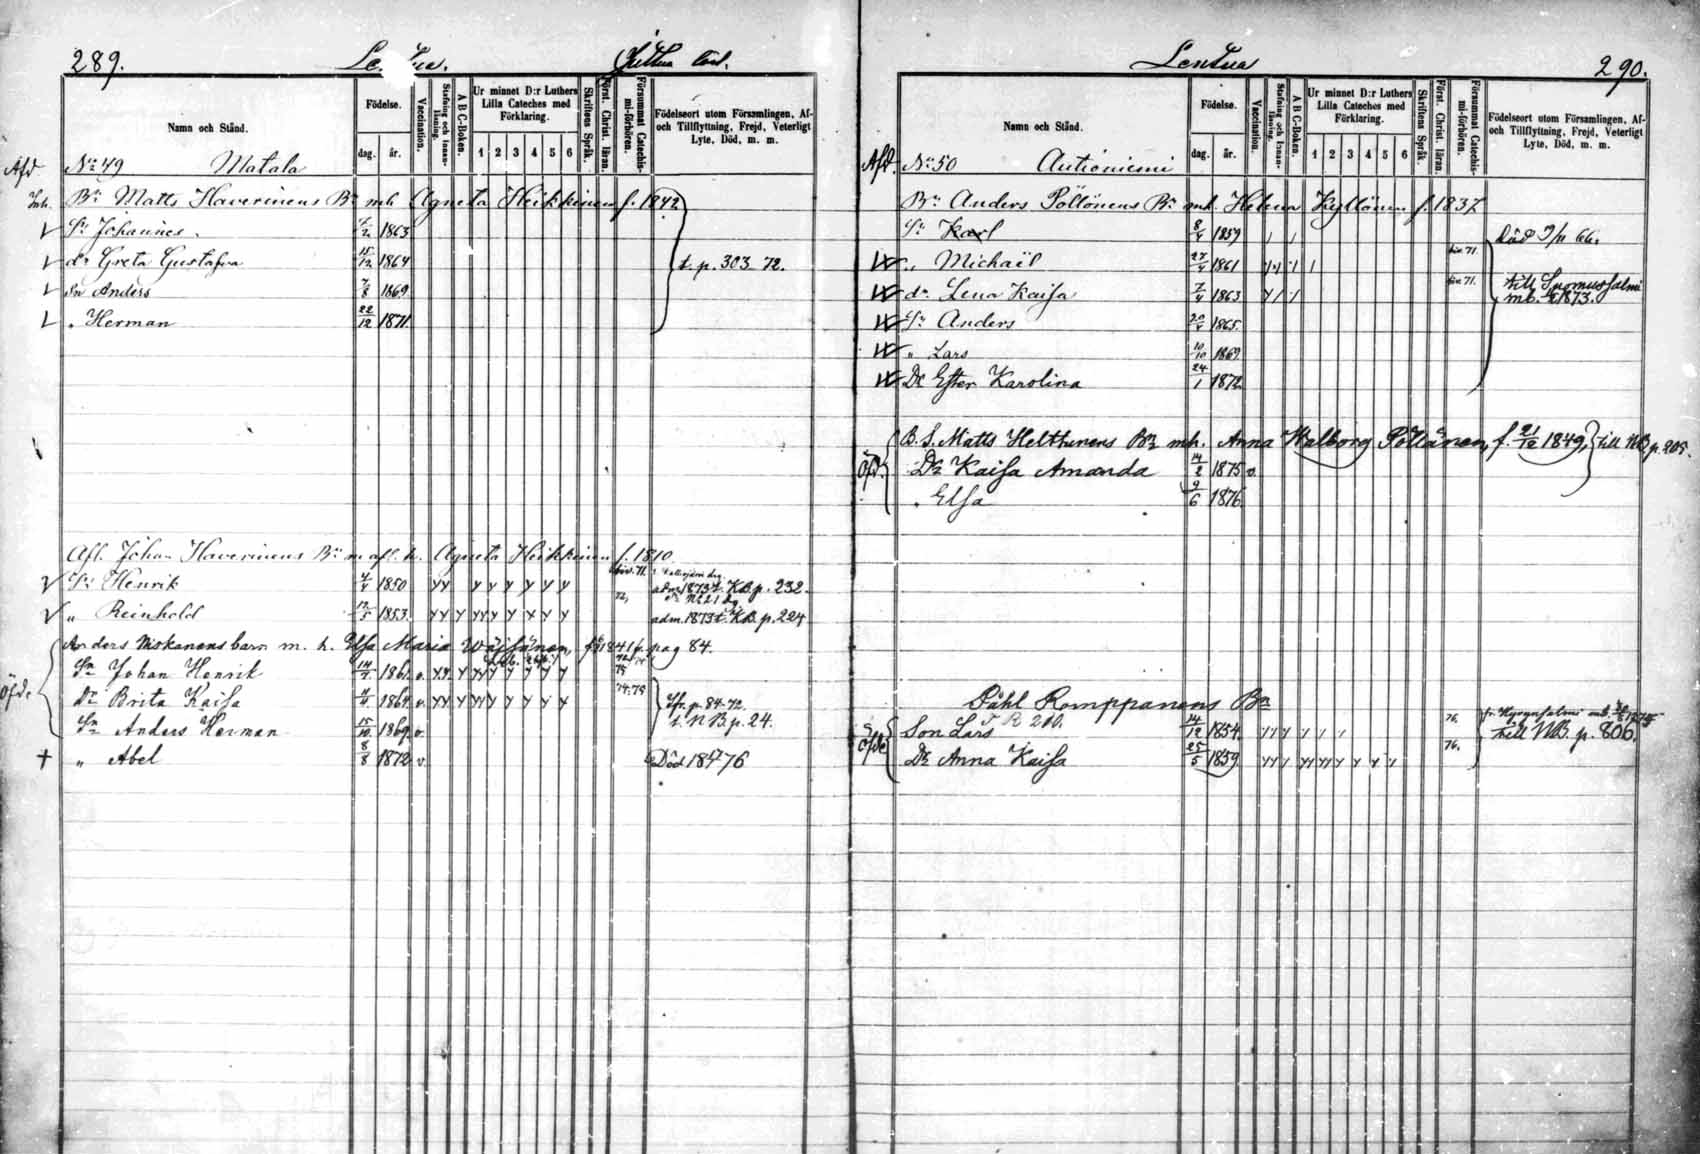 289.
Lentua.
Namn och Stånd.
Födelse.
dag.
år.
Vaccination.
Stafning och Innan-läsning.
A B C-Boken.
Ur minnet D:r Luthers Lilla Cateches med Förklaring.
1 2 3 4 5 6
Skriftens Språk.
Först. Christ. läran.
Försummat Catechis-mi-förhören.
Födelseort utom Församlingen, Af- och Tillflyttning, Frejd, Veterligt Lyte, Död, m. m.
Afd No 49 Matala
Bn Matts Haverinens Bn mh Agneta Heikkinen f. 1842
Sn Johannes 1863
dr Greta Gustafva 1864 t. p. 303. 72.
Sn Anders 7/8 1869
" Herman 22/12 1871.
Afl. Johan Haverinens Bn m afl. h. Agneta Heikkinen f. 1810
Sn Henrik 1850 y y y y y y y y 71. adm. 1873 t. KB p. 232.
" Reinhold 1853. 72, adm. 1873 t. KB p. 224
Anders Niskanens barn m. h. Elsa Maria Wäisänen, 1841 fr. pag 84.
Sn Johan Henrik 1861. v.
Dr Brita Kaisa 1864. v. 74.75 Ifr. p. 84. 72. t. N B. p. 24.
Sn Anders Herman 15/10 1869. v.
+ " Abel 8/8 1872 v. Död 18 76
Lentua
290.
Namn och Stånd.
Födelse.
dag.
år.
Vaccination.
Stafning och Innan-läsning.
A B C-Boken.
Ur minnet D:r Luthers Lilla Cateches med Förklaring.
1 2 3 4 5 6
Skriftens Språk.
Först. Christ. läran.
Försummat Catechis-mi-förhören.
Födelseort utom Församlingen, Af- och Tillflyttning, Frejd, Veterligt Lyte, Död, m. m.
Afd. No 50 Autioniemi
Bn Anders Pöllönens Bn mh. Helena Kyllönen f. 1837
Sn Karl 8/4 1859 Död 9/11 66.
" Michaël 27/4 1861 71.
dr. Lena Kaisa 7/4 1863 71. till Suomussalmi mb. 1873.
Sn Anders 20/4 1865.
" Lars 10/10 1869.
Dr Ester Karolina 24/1 1872
B. S. Matts Helttunens Bn mh. Anna Walborg Pöllänen, f. 21/12 1849, till NB p. 205.
Dr Kaisa Amanda 14/2 1875 v.
" Elsa 9/6 1876
Påhl Romppanens Bn
Son Lars 14/12 1854 76. fr. Hyrynsalmi mb. till NB. p. 806.
Dr Anna Kaisa 25/5 1859 76.